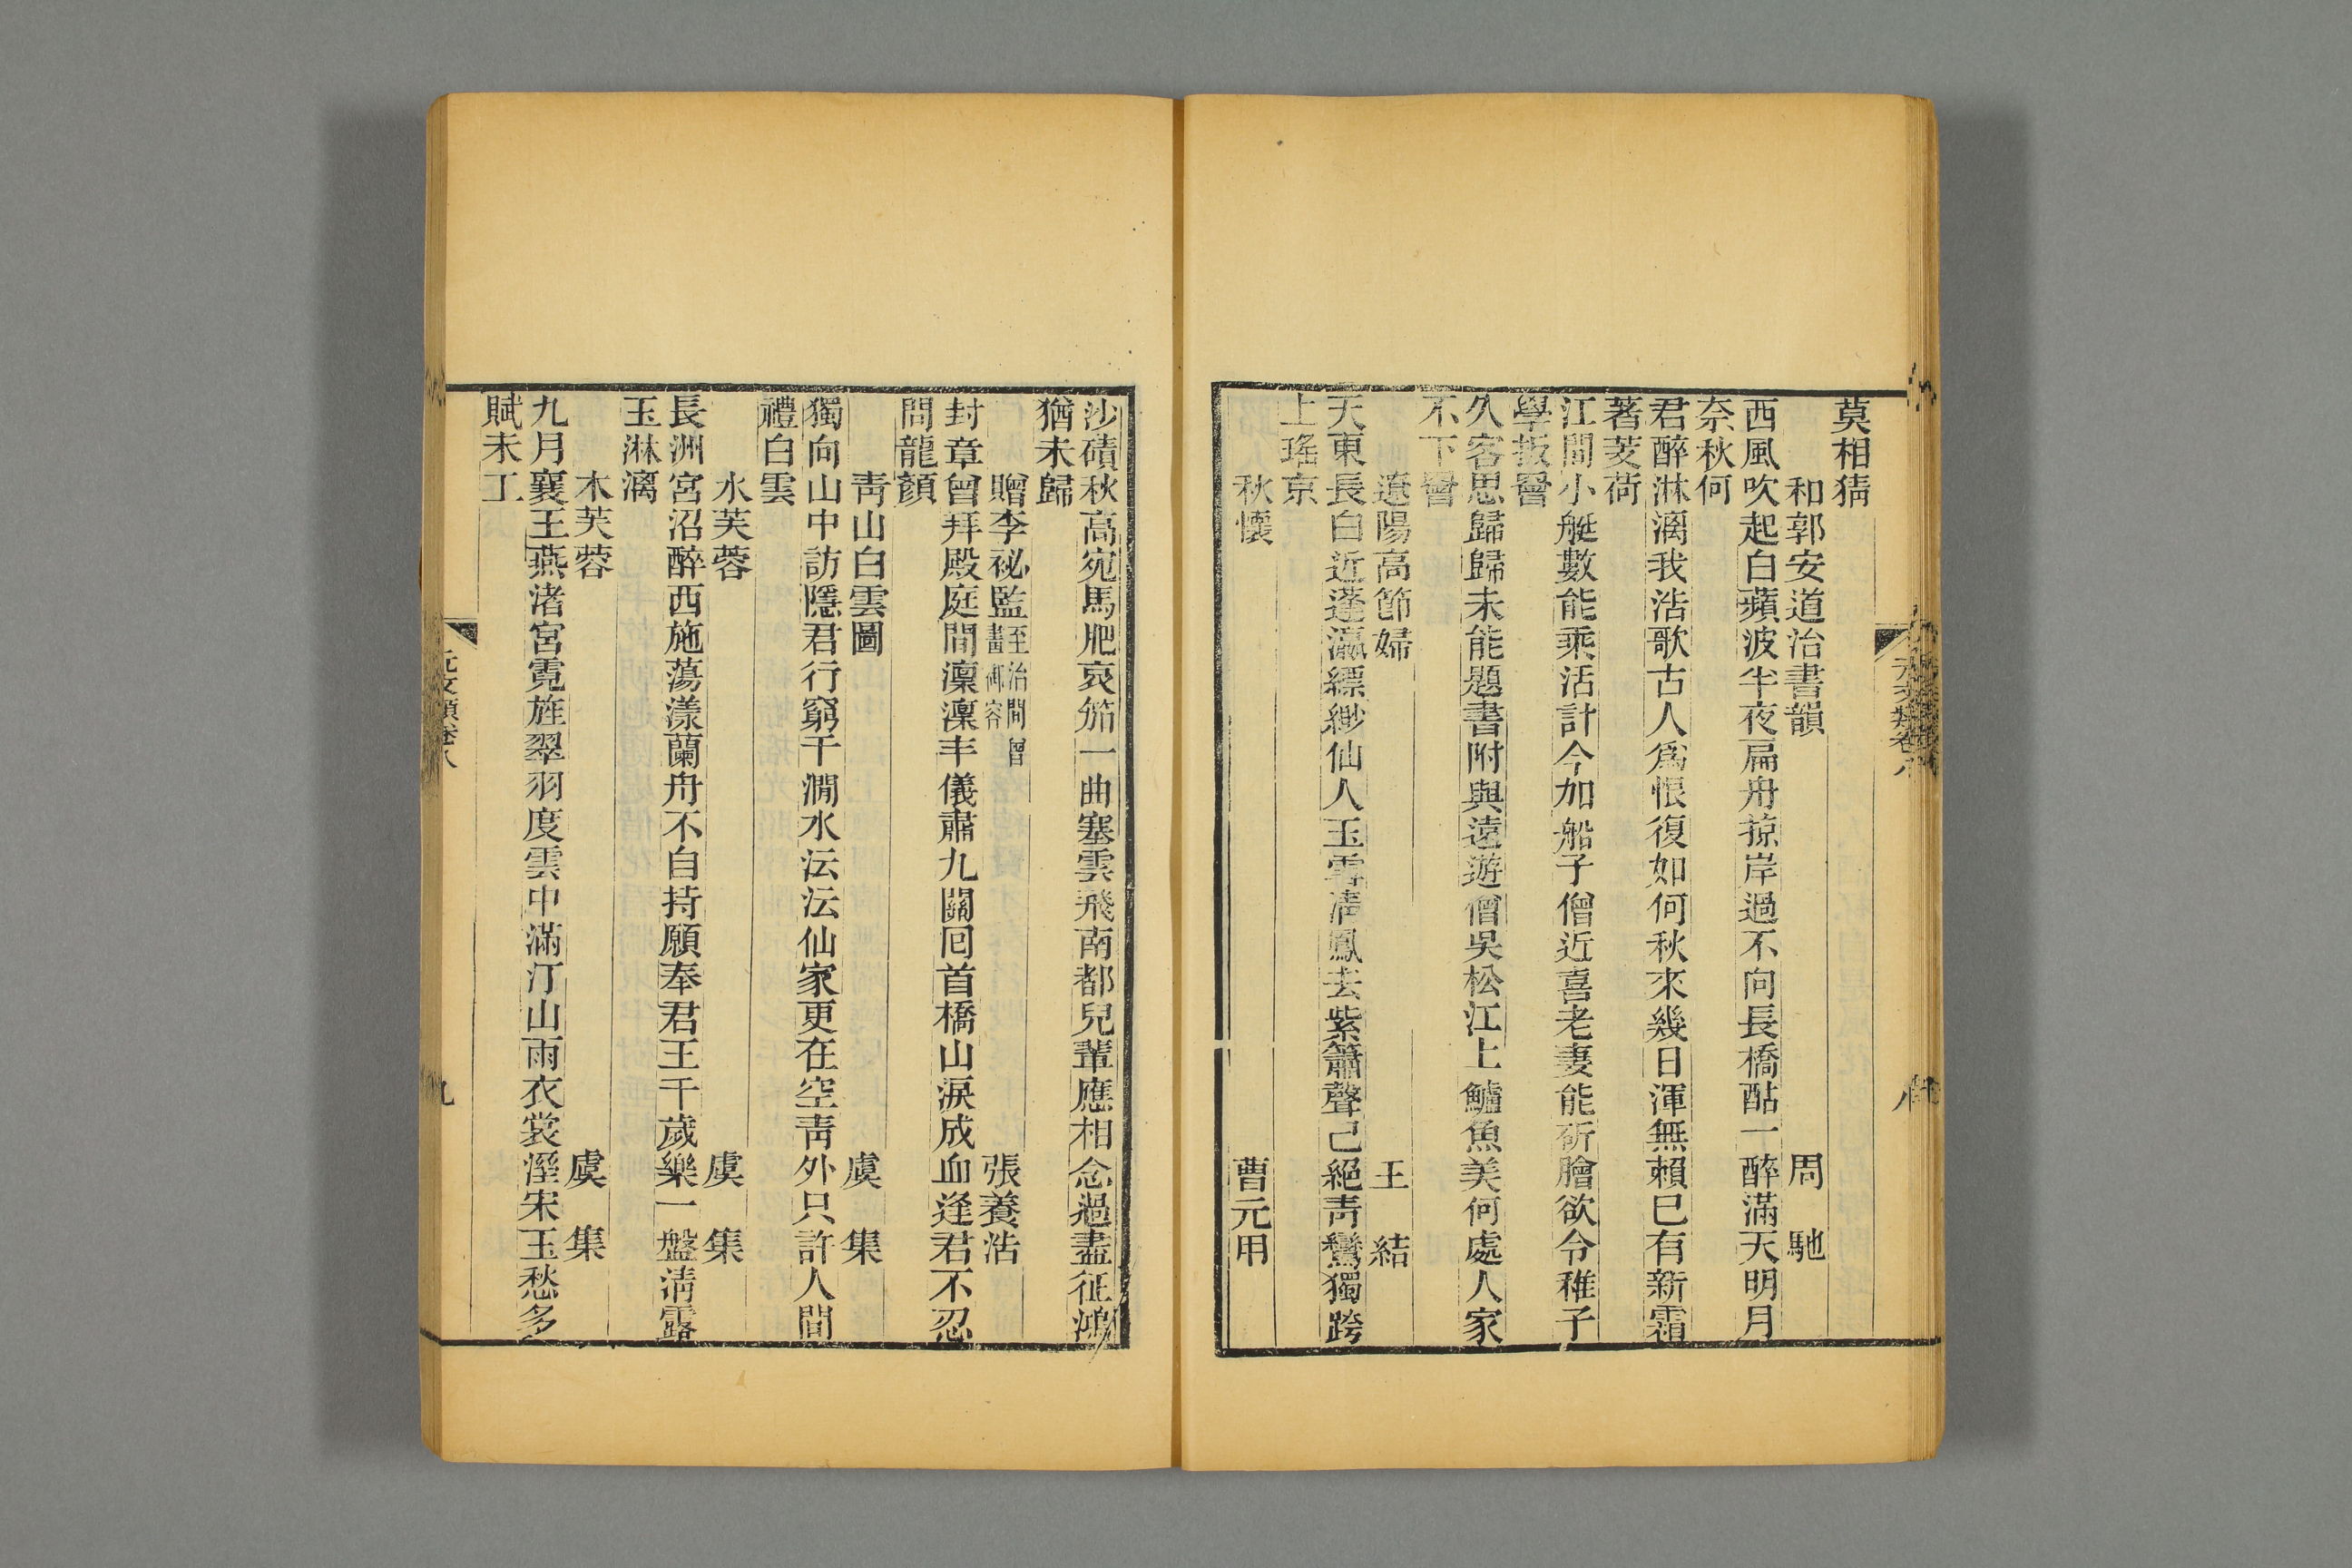 莫相猜
和郭安道治書韻 周馳
西風吹起白蘋波半夜扁舟掠岸過不向長橋酤一醉滿天明月
奈秋何
君醉淋漓我浩歌古人爲恨復如何秋來幾日渾無賴巳有新霜
著芰荷
江間小艇數能乘活計今加船子僧近喜老妻能斫膾欲令稚子
學扳罾
久客思歸歸未能題書附與遠遊僧吳松江上鱸魚美何處人家
不下罾
遼陽高節婦 王結
天東長白近蓬瀛縹緲仙人玉雪淸鳳去紫簫聲己絕靑鸞獨跨
上瑤京
秋懷 曹元用
元文類卷八
八
沙磧秋高宛馬肥哀笳一曲塞雲飛南都兒輩應相念過盡征鴻
猶未歸
贈李祕監至治間曾畫御容 張養浩
封章曾拜殿庭間凜凜丰儀肅九關囘首橋山淚成血逢君不忍
問龍顏
靑山白雲圖 虞集
獨向山中訪隱君行窮千澗水沄沄仙家更在空靑外只許人間
禮白雲
水芙蓉 虞集
長洲宮沼醉西施蕩漾蘭舟不自持願奉君王千歲樂一盤淸露
玉淋漓
木芙蓉 虞集
九月襄王燕渚宮霓旌翠羽度雲中滿汀山雨衣裳溼宋玉愁多
賦未工
元文類卷八
九